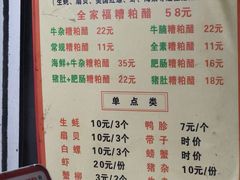 全家福糟粕醋 58元
牛杂糟粕醋 22元 牛腩糟粕醋 22元
常规糟粕醋 11元 全素糟粕醋 11元
海鲜+牛杂糟粕醋 35元 肥肠糟粕醋 16元
猪肚+肥肠糟粕醋 22元 猪肚糟粕醋 18元
单点类
生蚝 10元/3个 鸭胗 7元/个
扇贝 10元/3个 带子 时价
白螺 10元/份 螃蟹 时价
虾 20元/份 猪杂
蟹柳